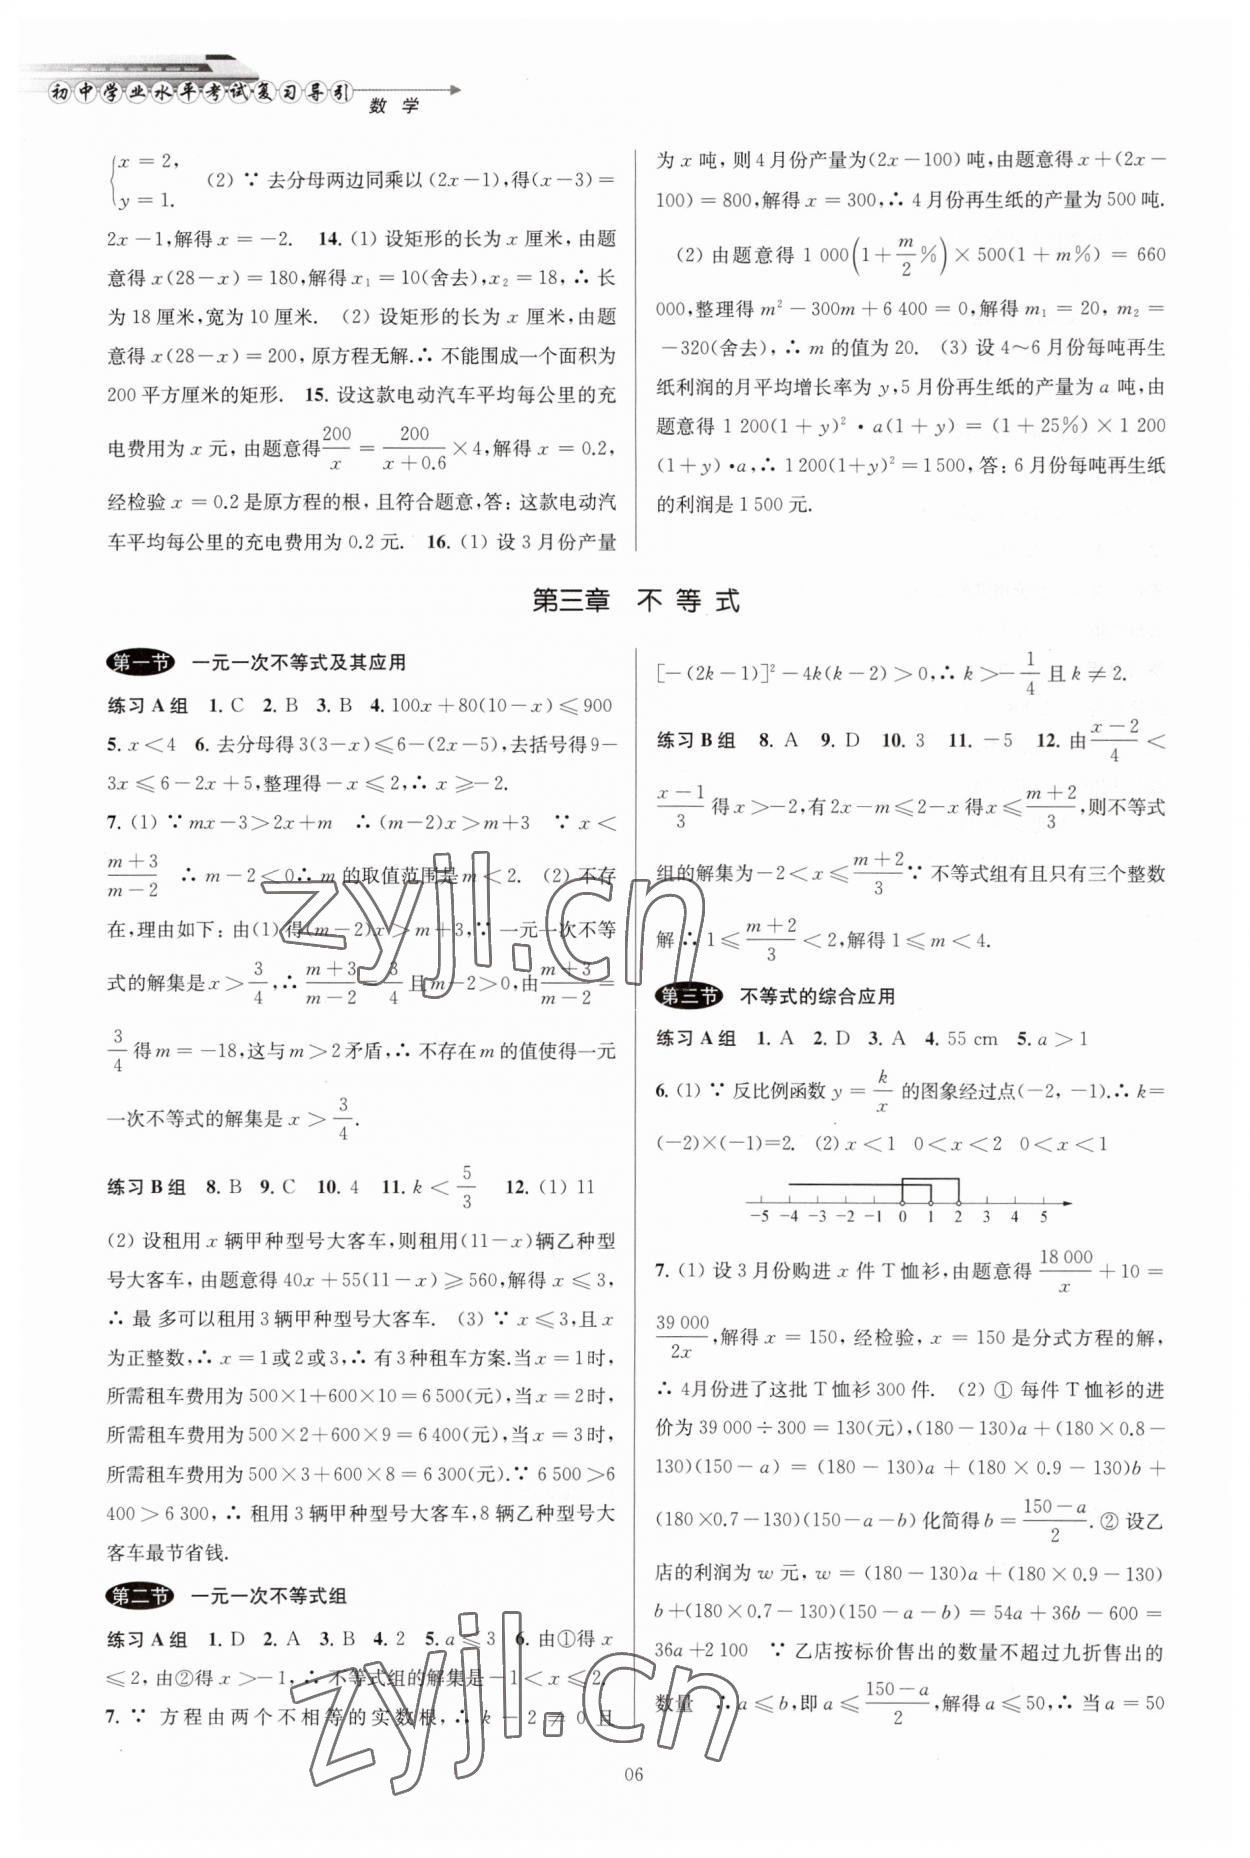 初中学业水平考试复习导引
数 学
{x=2,
y=1. (2) ∵ 去分母两边同乘以(2x-1),得(x-3)=
2x-1,解得 x=-2. 14. (1) 设矩形的长为 x 厘米,由题
意得 x(28-x)=180,解得 x₁=10(舍去),x₂=18,∴ 长
为 18 厘米,宽为 10 厘米. (2) 设矩形的长为 x 厘米,由题
意得 x(28-x)=200,原方程无解.∴ 不能围成一个面积为
200 平方厘米的矩形. 15. 设这款电动汽车平均每公里的充
电费用为 x 元,由题意得 200/x = 200/(x+0.6) ×4,解得 x=0.2,
经检验 x=0.2 是原方程的根,且符合题意,答:这款电动汽
车平均每公里的充电费用为 0.2 元. 16. (1) 设 3 月份产量
为 x 吨,则 4 月份产量为(2x-100)吨,由题意得 x+(2x-
100)=800,解得 x=300,∴ 4 月份再生纸的产量为 500 吨.
(2) 由题意得 1 000(1+m/2 %)×500(1+m%)=660
000,整理得 m²-300m+6 400=0,解得 m₁=20,m₂=
-320(舍去),∴ m 的值为 20. (3) 设 4～6 月份每吨再生
纸利润的月平均增长率为 y,5 月份再生纸的产量为 a 吨,由
题意得 1 200(1+y)²·a(1+y)=(1+25%)×1 200
(1+y)·a,∴ 1 200(1+y)²=1 500,答:6 月份每吨再生纸
的利润是 1 500 元.
第三章 不 等 式
第一节 一元一次不等式及其应用
练习 A 组 1. C 2. B 3. B 4. 100x+80(10-x)≤900
5. x<4 6. 去分母得 3(3-x)≤6-(2x-5),去括号得 9-
3x≤6-2x+5,整理得 -x≤2,∴ x≥-2.
7. (1) ∵ mx-3>2x+m ∴(m-2)x>m+3 ∵ x<
(m+3)/(m-2) ∴ m-2<0∴ m 的取值范围是 m<2. (2) 不存
在,理由如下:由(1)得(m-2)x>m+3,∵ 一元一次不等
式的解集是 x>3/4,∴ (m+3)/(m-2)=3/4 且 m-2>0,由(m+3)/(m-2)=
3/4 得 m=-18,这与 m>2 矛盾,∴ 不存在 m 的值使得一元
一次不等式的解集是 x>3/4.
练习 B 组 8. B 9. C 10. 4 11. k<5/3 12. (1) 11
(2) 设租用 x 辆甲种型号大客车,则租用(11-x)辆乙种型
号大客车,由题意得 40x+55(11-x)≥560,解得 x≤3,
∴ 最 多可以租用 3 辆甲种型号大客车. (3) ∵ x≤3,且 x
为正整数,∴ x=1 或 2 或 3,∴ 有 3 种租车方案.当 x=1 时,
所需租车费用为 500×1+600×10=6 500(元),当 x=2 时,
所需租车费用为 500×2+600×9=6 400(元),当 x=3 时,
所需租车费用为 500×3+600×8=6 300(元).∵ 6 500>6
400>6 300,∴ 租用 3 辆甲种型号大客车,8 辆乙种型号大
客车最节省钱.
第二节 一元一次不等式组
练习 A 组 1. D 2. A 3. B 4. 2 5. a≤3 6. 由①得 x
≤2,由②得 x>-1,∴ 不等式组的解集是-1<x≤2.
7. ∵ 方程由两个不相等的实数根,∴ k-2≠0 且
[-(2k-1)]²-4k(k-2)>0,∴ k>-1/4 且 k≠2.
练习 B 组 8. A 9. D 10. 3 11. -5 12. 由(x-2)/4<
(x-1)/3 得 x>-2,有 2x-m≤2-x 得 x≤(m+2)/3,则不等式
组的解集为-2<x≤(m+2)/3∵ 不等式组有且只有三个整数
解∴ 1≤(m+2)/3<2,解得 1≤m<4.
第三节 不等式的综合应用
练习 A 组 1. A 2. D 3. A 4. 55 cm 5. a>1
6. (1) ∵ 反比例函数 y=k/x 的图象经过点(-2,-1).∴ k=
(-2)×(-1)=2. (2) x<1 0<x<2 0<x<1
-5 -4 -3 -2 -1 0 1 2 3 4 5
7. (1) 设 3 月份购进 x 件 T 恤衫,由题意得 18 000/x+10=
39 000/2x,解得 x=150,经检验,x=150 是分式方程的解,
∴ 4 月份进了这批 T 恤衫 300 件. (2) ① 每件 T 恤衫的进
价为 39 000÷300=130(元),(180-130)a+(180×0.8-
130)(150-a)=(180-130)a+(180×0.9-130)b+
(180×0.7-130)(150-a-b)化简得 b=(150-a)/2.② 设乙
店的利润为 w 元,w=(180-130)a+(180×0.9-130)
b+(180×0.7-130)(150-a-b)=54a+36b-600=
36a+2 100 ∵ 乙店按标价售出的数量不超过九折售出的
数量 ∴ a≤b,即 a≤(150-a)/2,解得 a≤50,∴ 当 a=50
06
zyjl.cn
zyjl.cn